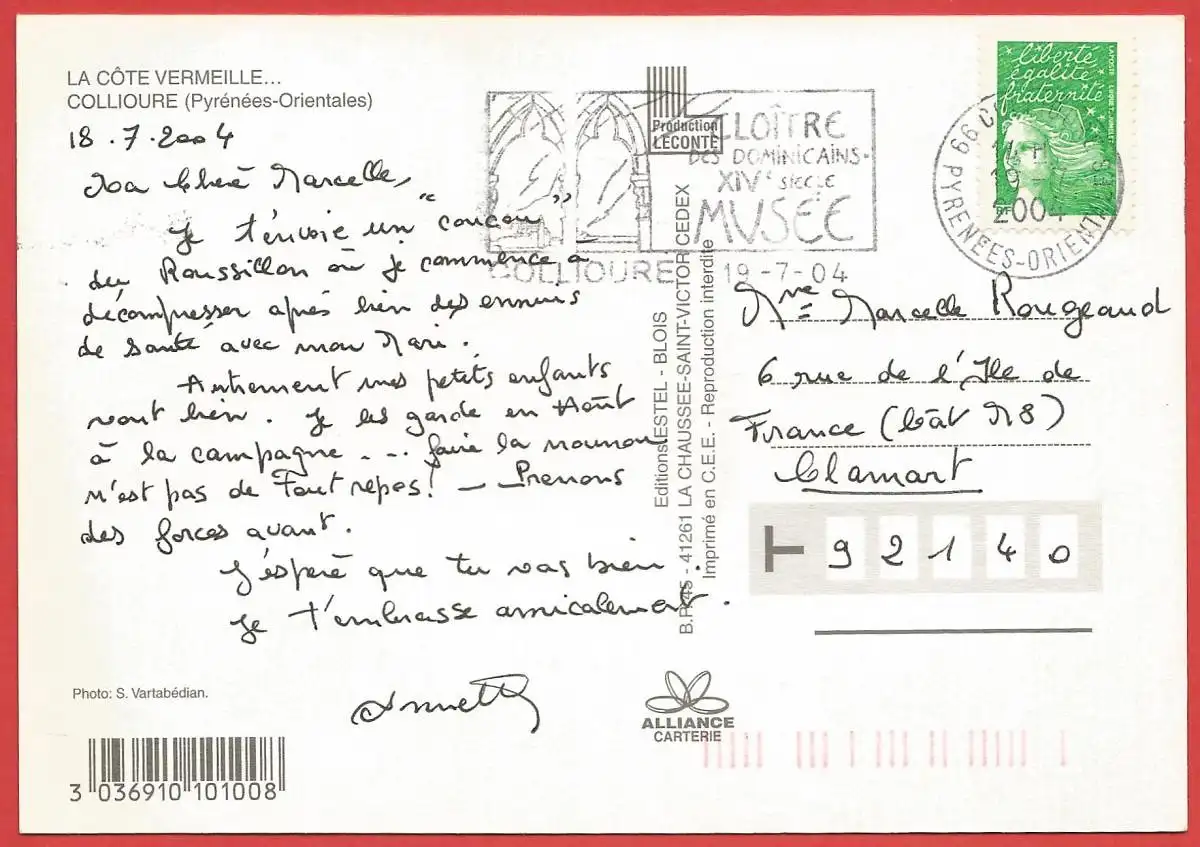 LA CÔTE VERMEILLE...
COLLIOURE (Pyrénées-Orientales)
18.7.2004
Ma Chère Marcelle,
Je t'envoie un "coucou"
du Roussillon où je commence à
décompresser après bien des ennuis
de santé avec mon Mari.
Autrement mes petits enfants
vont bien. Je les garde en Août
à la campagne... faire la nounou
n'est pas de tout repos! - Prenons
des forces avant.
J'espère que tu vas bien.
Je t'embrasse amicalement.
Annette
Photo: S. Vartabédian.
3 036910 101008
Production
LECONTE
CLOÎTRE
DES DOMINICAINS.
XIVe SIECLE
MUSEE
COLLIOURE 19-7-04
Editions ESTEL - BLOIS
B.P. 45 - 41261 LA CHAUSSEE-SAINT-VICTOR CEDEX
Imprimé en C.E.E. - Reproduction interdite
ALLIANCE
CARTERIE
liberté
égalité
fraternité
LA POSTE
66
2004
PYRENEES-ORIENTALES
Mme Marcelle Rougeaud
6 rue de l'Ile de
France (bât M8)
Clamart
92140